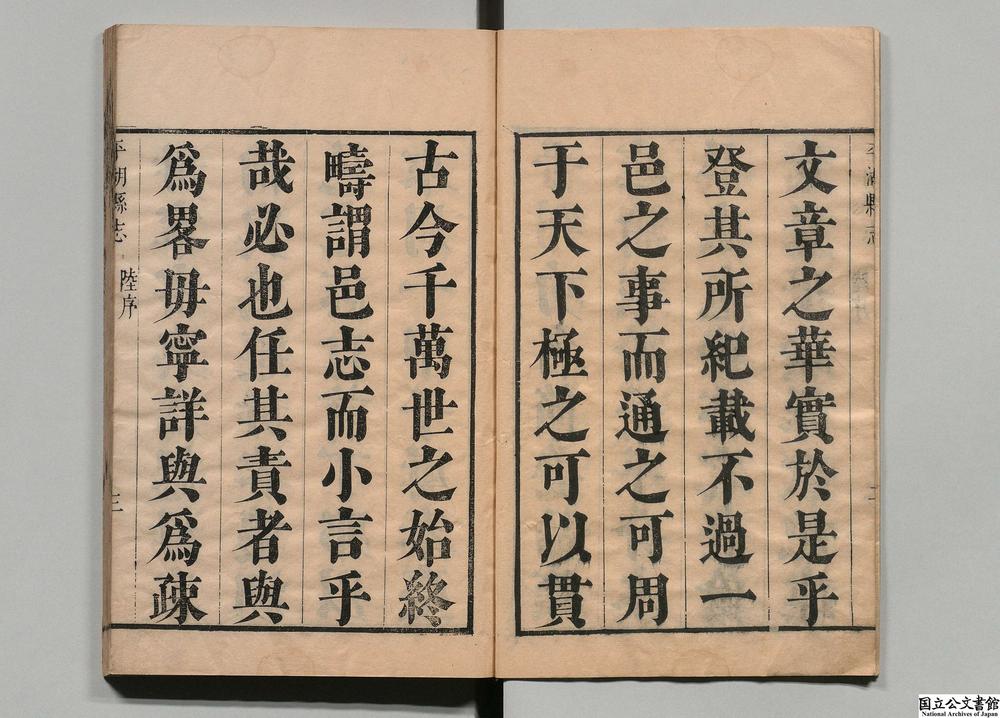 文章之華實於是乎
登其所紀載不過一
邑之事而通之可周
于天下極之可以貫
古今千萬世之始終
疇謂邑志而小言乎
哉必也任其責者與
爲畧毋寧詳與爲疎
平湖縣志
陸序
三
国立公文書館
National Archives of Japan